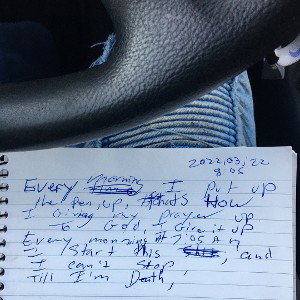 2022,03,22
8:05
Every morning I Put up
the Pen, up, thats How
I Giving my Prayer up
To God, I Give it up
Every morning at 7:05 AM
I start this, and
I can't stop,
Till I'm Death,